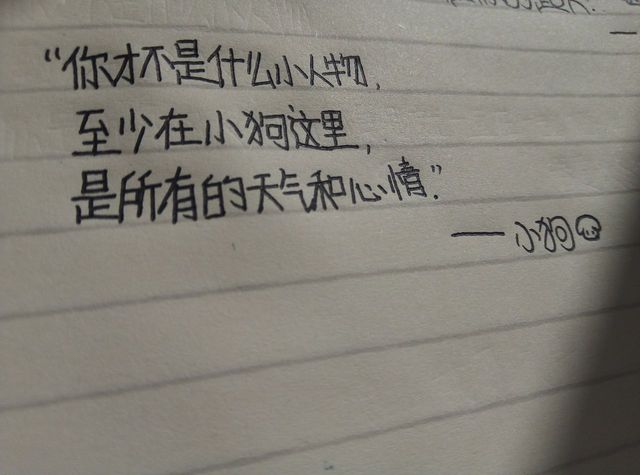 “你才不是什么小人物，
至少在小狗这里，
是所有的天气和心情。”
—— 小狗